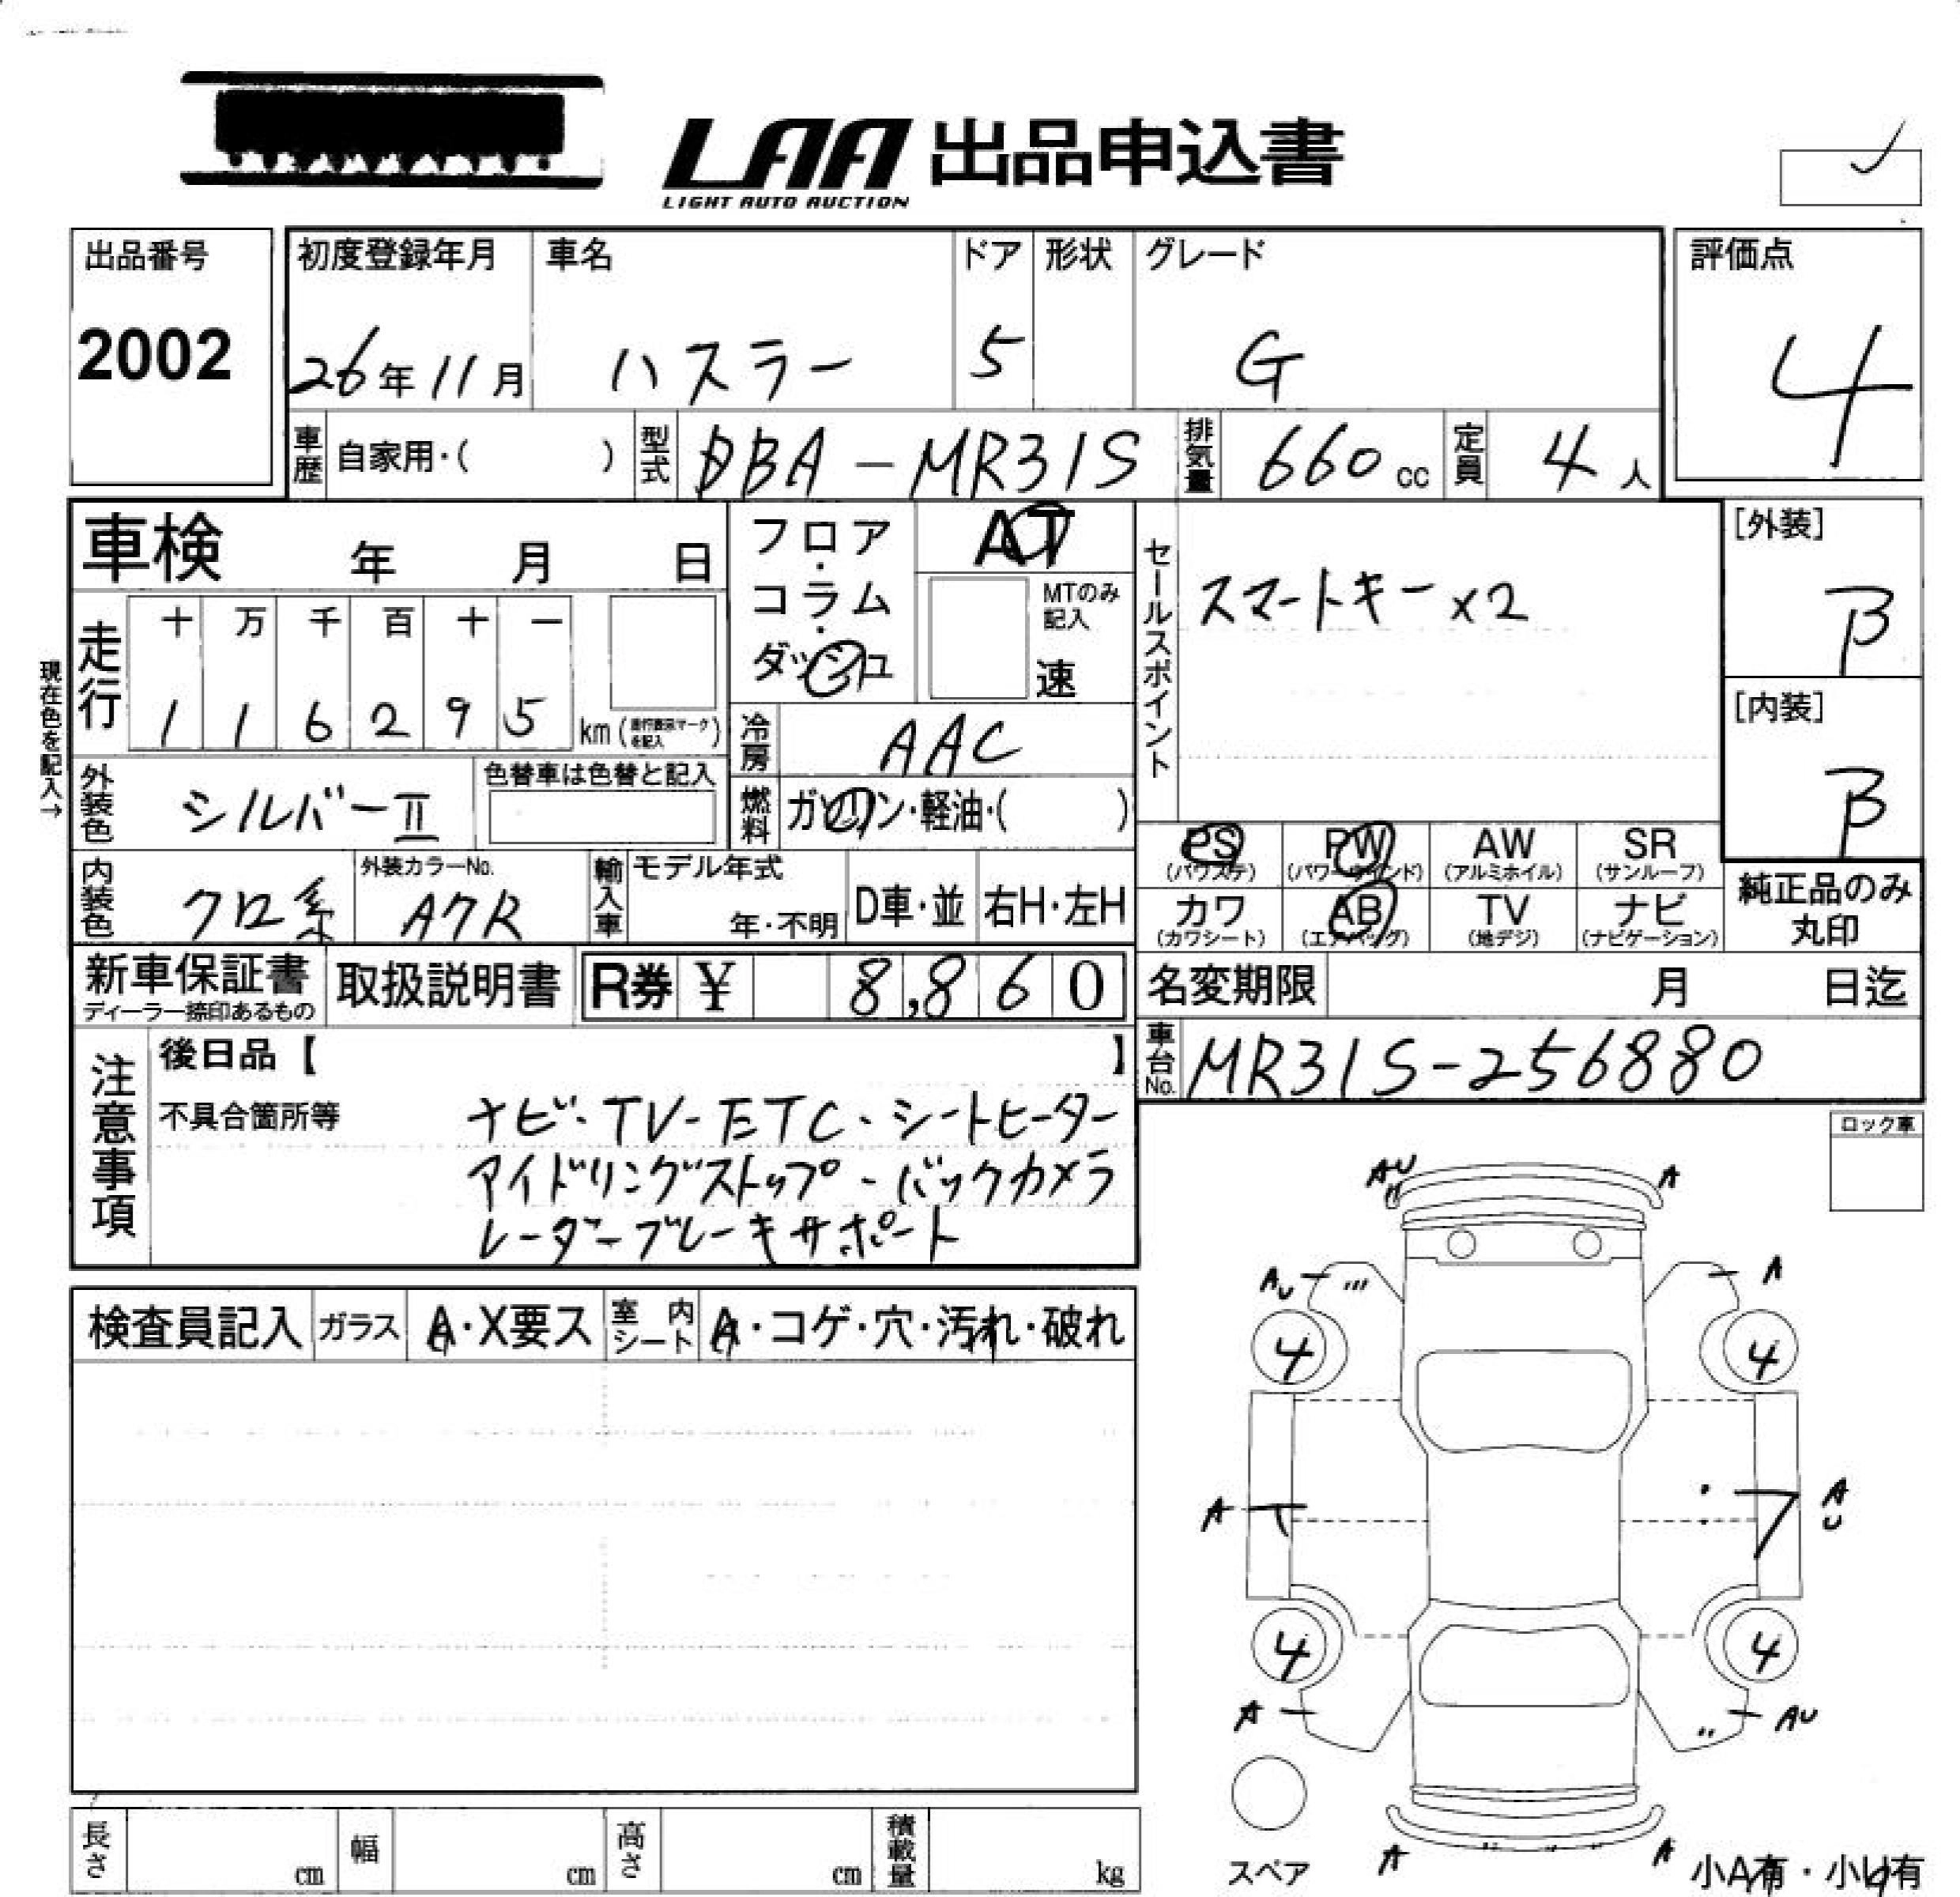 LAA 出品申込書
LIGHT AUTO AUCTION
出品番号
2002
初度登録年月 車名 ドア 形状 グレード
26年11月 ハスラー 5 G
評価点
4
車歴 自家用・( ) 型式 DBA-MR31S 排気量 660cc 定員 4人
車検 年 月 日
フロア・コラム・ダッシュ
AT
MTのみ記入
速
セールスポイント
スマートキー×2
[外装]
B
[内装]
B
現在色を記入→
走行
十 万 千 百 十 一
1 1 6 2 9 5 km
冷房 AAC
外装色 シルバーⅡ
色替車は色替と記入
燃料 ガソリン・軽油・( )
PS PW AW SR
(パワステ) (パワーウインド) (アルミホイル) (サンルーフ)
カワ AB TV ナビ
(カワシート) (エアバッグ) (地デジ) (ナビゲーション)
純正品のみ
丸印
内装色 クロ系
外装カラーNo.
輸入車 モデル年式
年・不明 D車・並 右H・左H
新車保証書
ディーラー捺印あるもの
取扱説明書
R券 ¥ 8,860
名変期限 月 日迄
車台No. MR31S-256880
注意事項
後日品【 】
不具合箇所等
ナビ・TV-ETC・シートヒーター
アイドリングストップ-バックカメラ
レーダーブレーキサポート
ロック車
検査員記入 ガラス A・X要ス 室内シート A・コゲ・穴・汚れ・破れ
AU A
AU A
4 4
A A
U
4 4
A AU
A A
スペア
小A有・小U有
長さ cm 幅 cm 高さ cm 積載量 kg